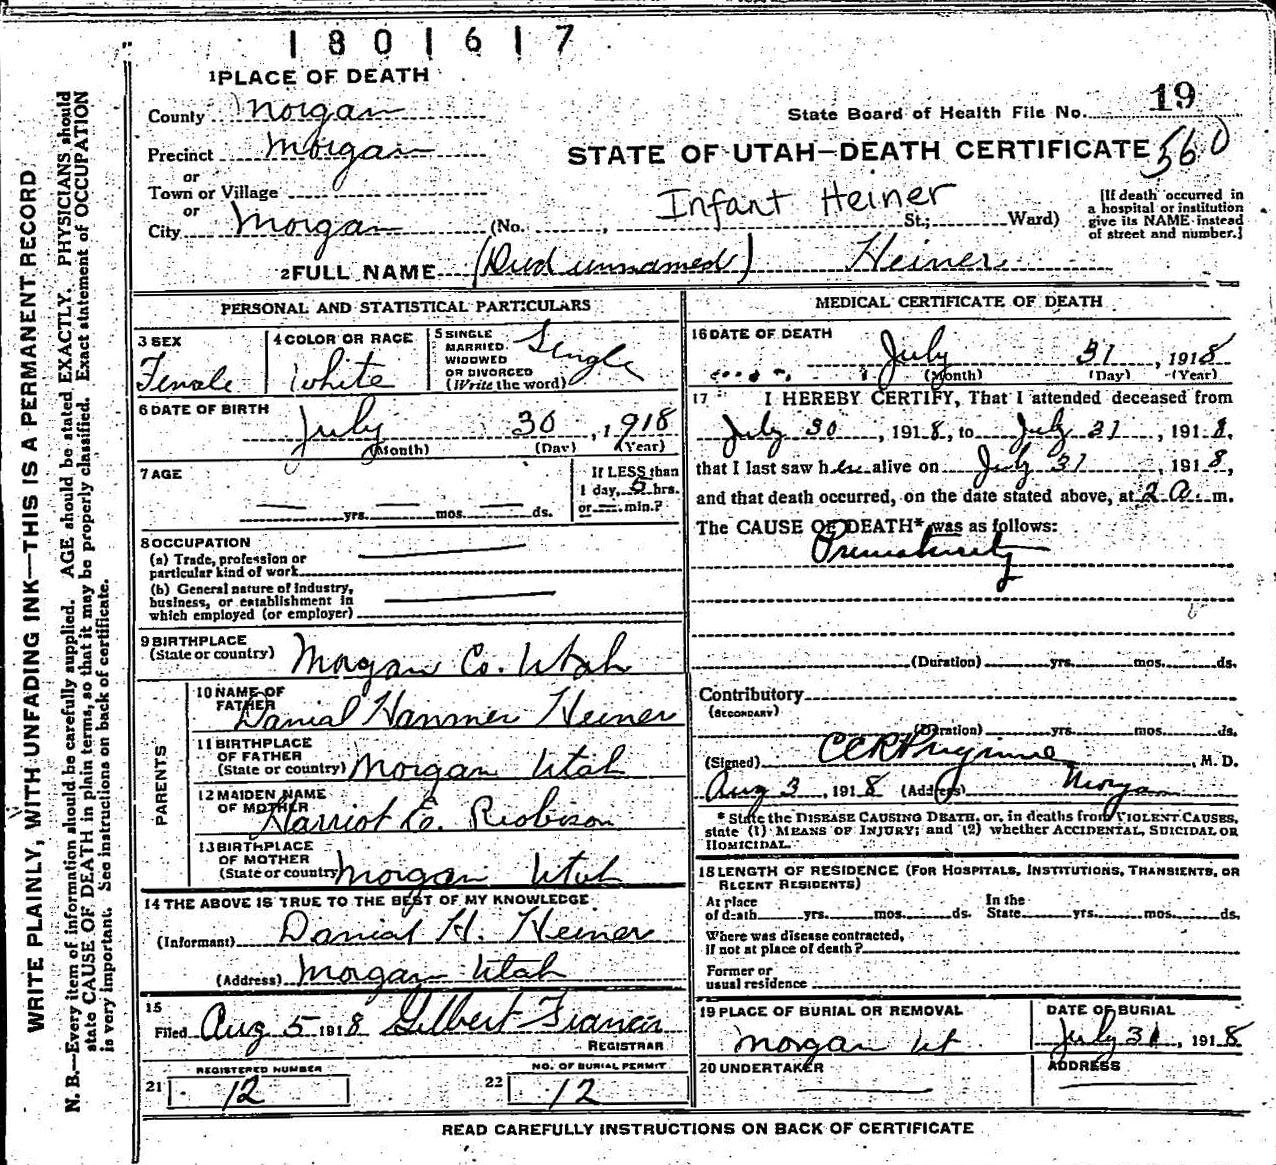 1801617
1 PLACE OF DEATH
County Morgan
19
State Board of Health File No.
Precinct Morgan
STATE OF UTAH—DEATH CERTIFICATE 560
or
Town or Village
or
Infant Heiner
City Morgan (No. , St.; Ward)
[If death occurred in
a hospital or institution
give its NAME instead
of street and number.]
2 FULL NAME (Died unnamed) Heiner
WRITE PLAINLY, WITH UNFADING INK—THIS IS A PERMANENT RECORD
N. B.—Every item of information should be carefully supplied. AGE should be stated EXACTLY. PHYSICIANS should
state CAUSE OF DEATH in plain terms, so that it may be properly classified. Exact statement of OCCUPATION
is very important. See instructions on back of certificate.
PERSONAL AND STATISTICAL PARTICULARS
3 SEX
Female
4 COLOR OR RACE
White
5 SINGLE
MARRIED
WIDOWED
OR DIVORCED
(Write the word)
Single
6 DATE OF BIRTH
July 30, 1918
(Month) (Day) (Year)
7 AGE
yrs. mos. ds.
If LESS than
1 day, 5 hrs.
or min.?
8 OCCUPATION
(a) Trade, profession or
particular kind of work
(b) General nature of industry,
business, or establishment in
which employed (or employer)
9 BIRTHPLACE
(State or country) Morgan Co. Utah
PARENTS
10 NAME OF
FATHER
Danial Hanmer Heiner
11 BIRTHPLACE
OF FATHER
(State or country) Morgan Utah
12 MAIDEN NAME
OF MOTHER
Harriot E. Robison
13 BIRTHPLACE
OF MOTHER
(State or country) Morgan Utah
14 THE ABOVE IS TRUE TO THE BEST OF MY KNOWLEDGE
(Informant) Danial H. Heiner
(Address) Morgan Utah
15
Filed Aug 5 1918 Gilbert Francis
REGISTRAR
REGISTERED NUMBER
21 12
NO. OF BURIAL PERMIT
22 12
MEDICAL CERTIFICATE OF DEATH
16 DATE OF DEATH
July 31, 1918
(Month) (Day) (Year)
17 I HEREBY CERTIFY, That I attended deceased from
July 30, 1918, to July 31, 1918,
that I last saw her alive on July 31, 1918,
and that death occurred, on the date stated above, at 2 A. m.
The CAUSE OF DEATH* was as follows:
Prematurity
(Duration) yrs. mos. ds.
Contributory
(SECONDARY)
(Duration) yrs. mos. ds.
(Signed) , M. D.
Aug 3, 1918 (Address) Morgan
* State the DISEASE CAUSING DEATH, or, in deaths from VIOLENT CAUSES,
state (1) MEANS OF INJURY; and (2) whether ACCIDENTAL, SUICIDAL OR
HOMICIDAL.
18 LENGTH OF RESIDENCE (FOR HOSPITALS, INSTITUTIONS, TRANSIENTS, OR
RECENT RESIDENTS)
At place In the
of death yrs. mos. ds. State yrs. mos. ds.
Where was disease contracted,
if not at place of death?
Former or
usual residence
19 PLACE OF BURIAL OR REMOVAL
Morgan Ut.
DATE OF BURIAL
July 31, 1918
20 UNDERTAKER
ADDRESS
READ CAREFULLY INSTRUCTIONS ON BACK OF CERTIFICATE